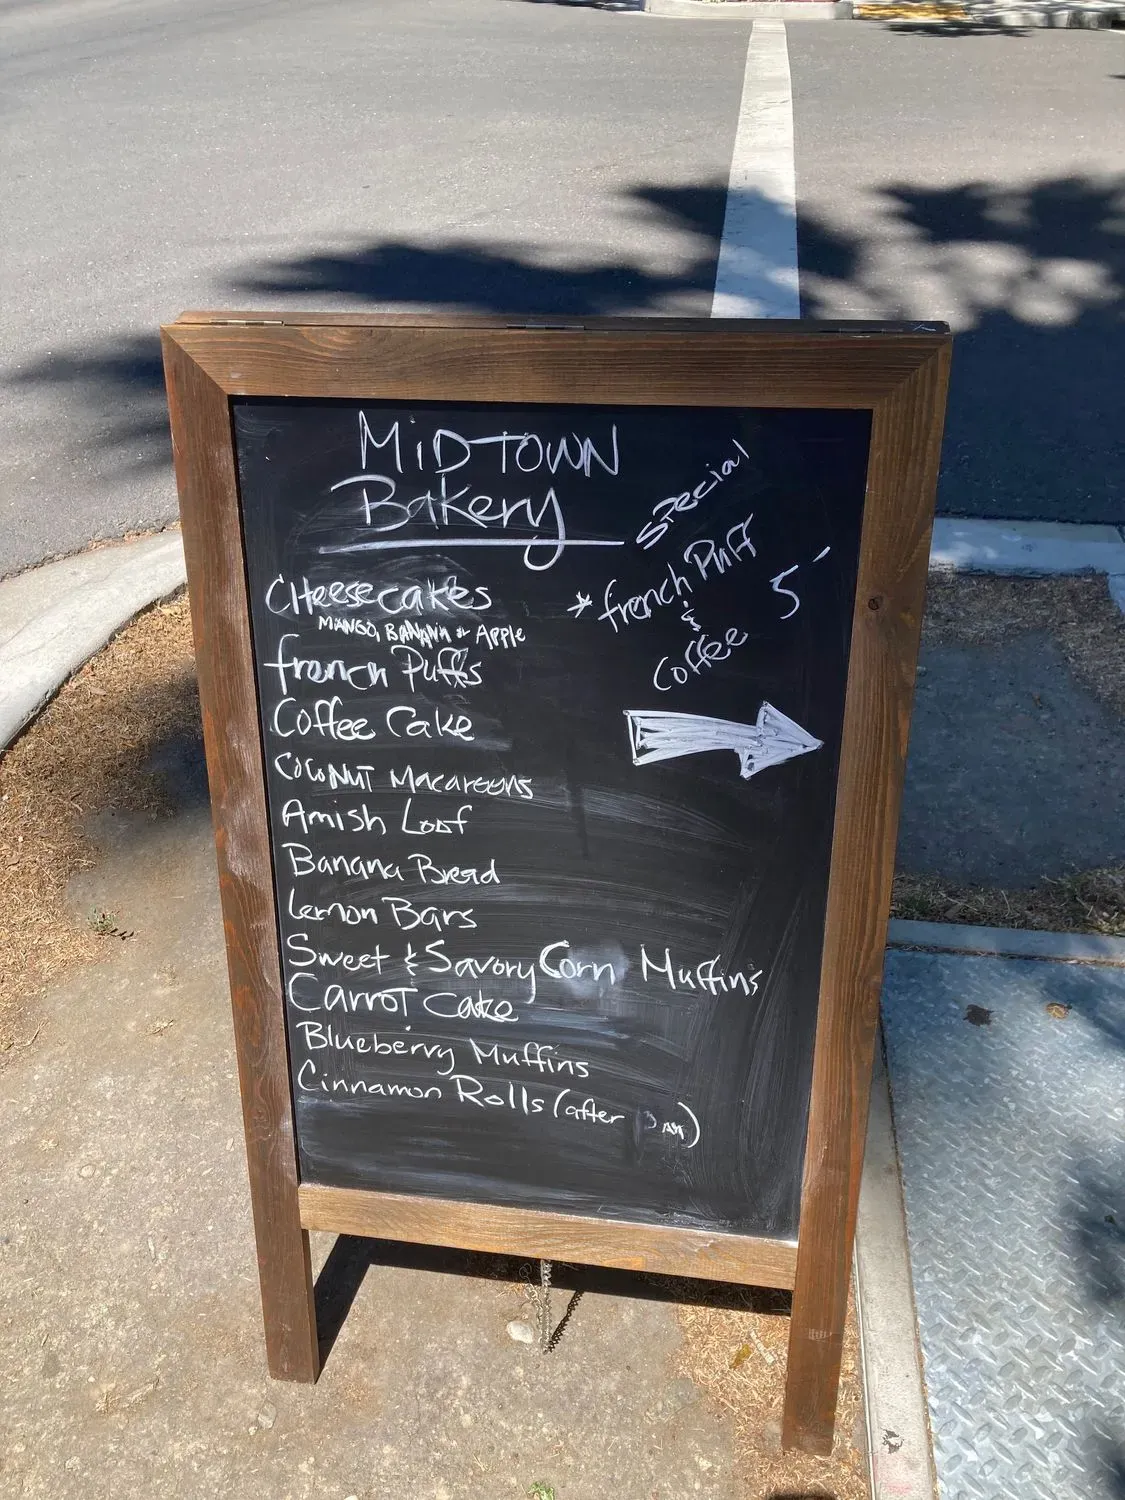 MiDTOWN
Bakery
Special
* french Puff
&
Coffee
5
CHeesecakes
MANGO, BANANA & Apple
french Puffs
Coffee Cake
COCONUT Macaroons
Amish Loaf
Banana Bread
Lemon Bars
Sweet & Savory Corn Muffins
CarroT Cake
Blueberry Muffins
Cinnamon Rolls (after